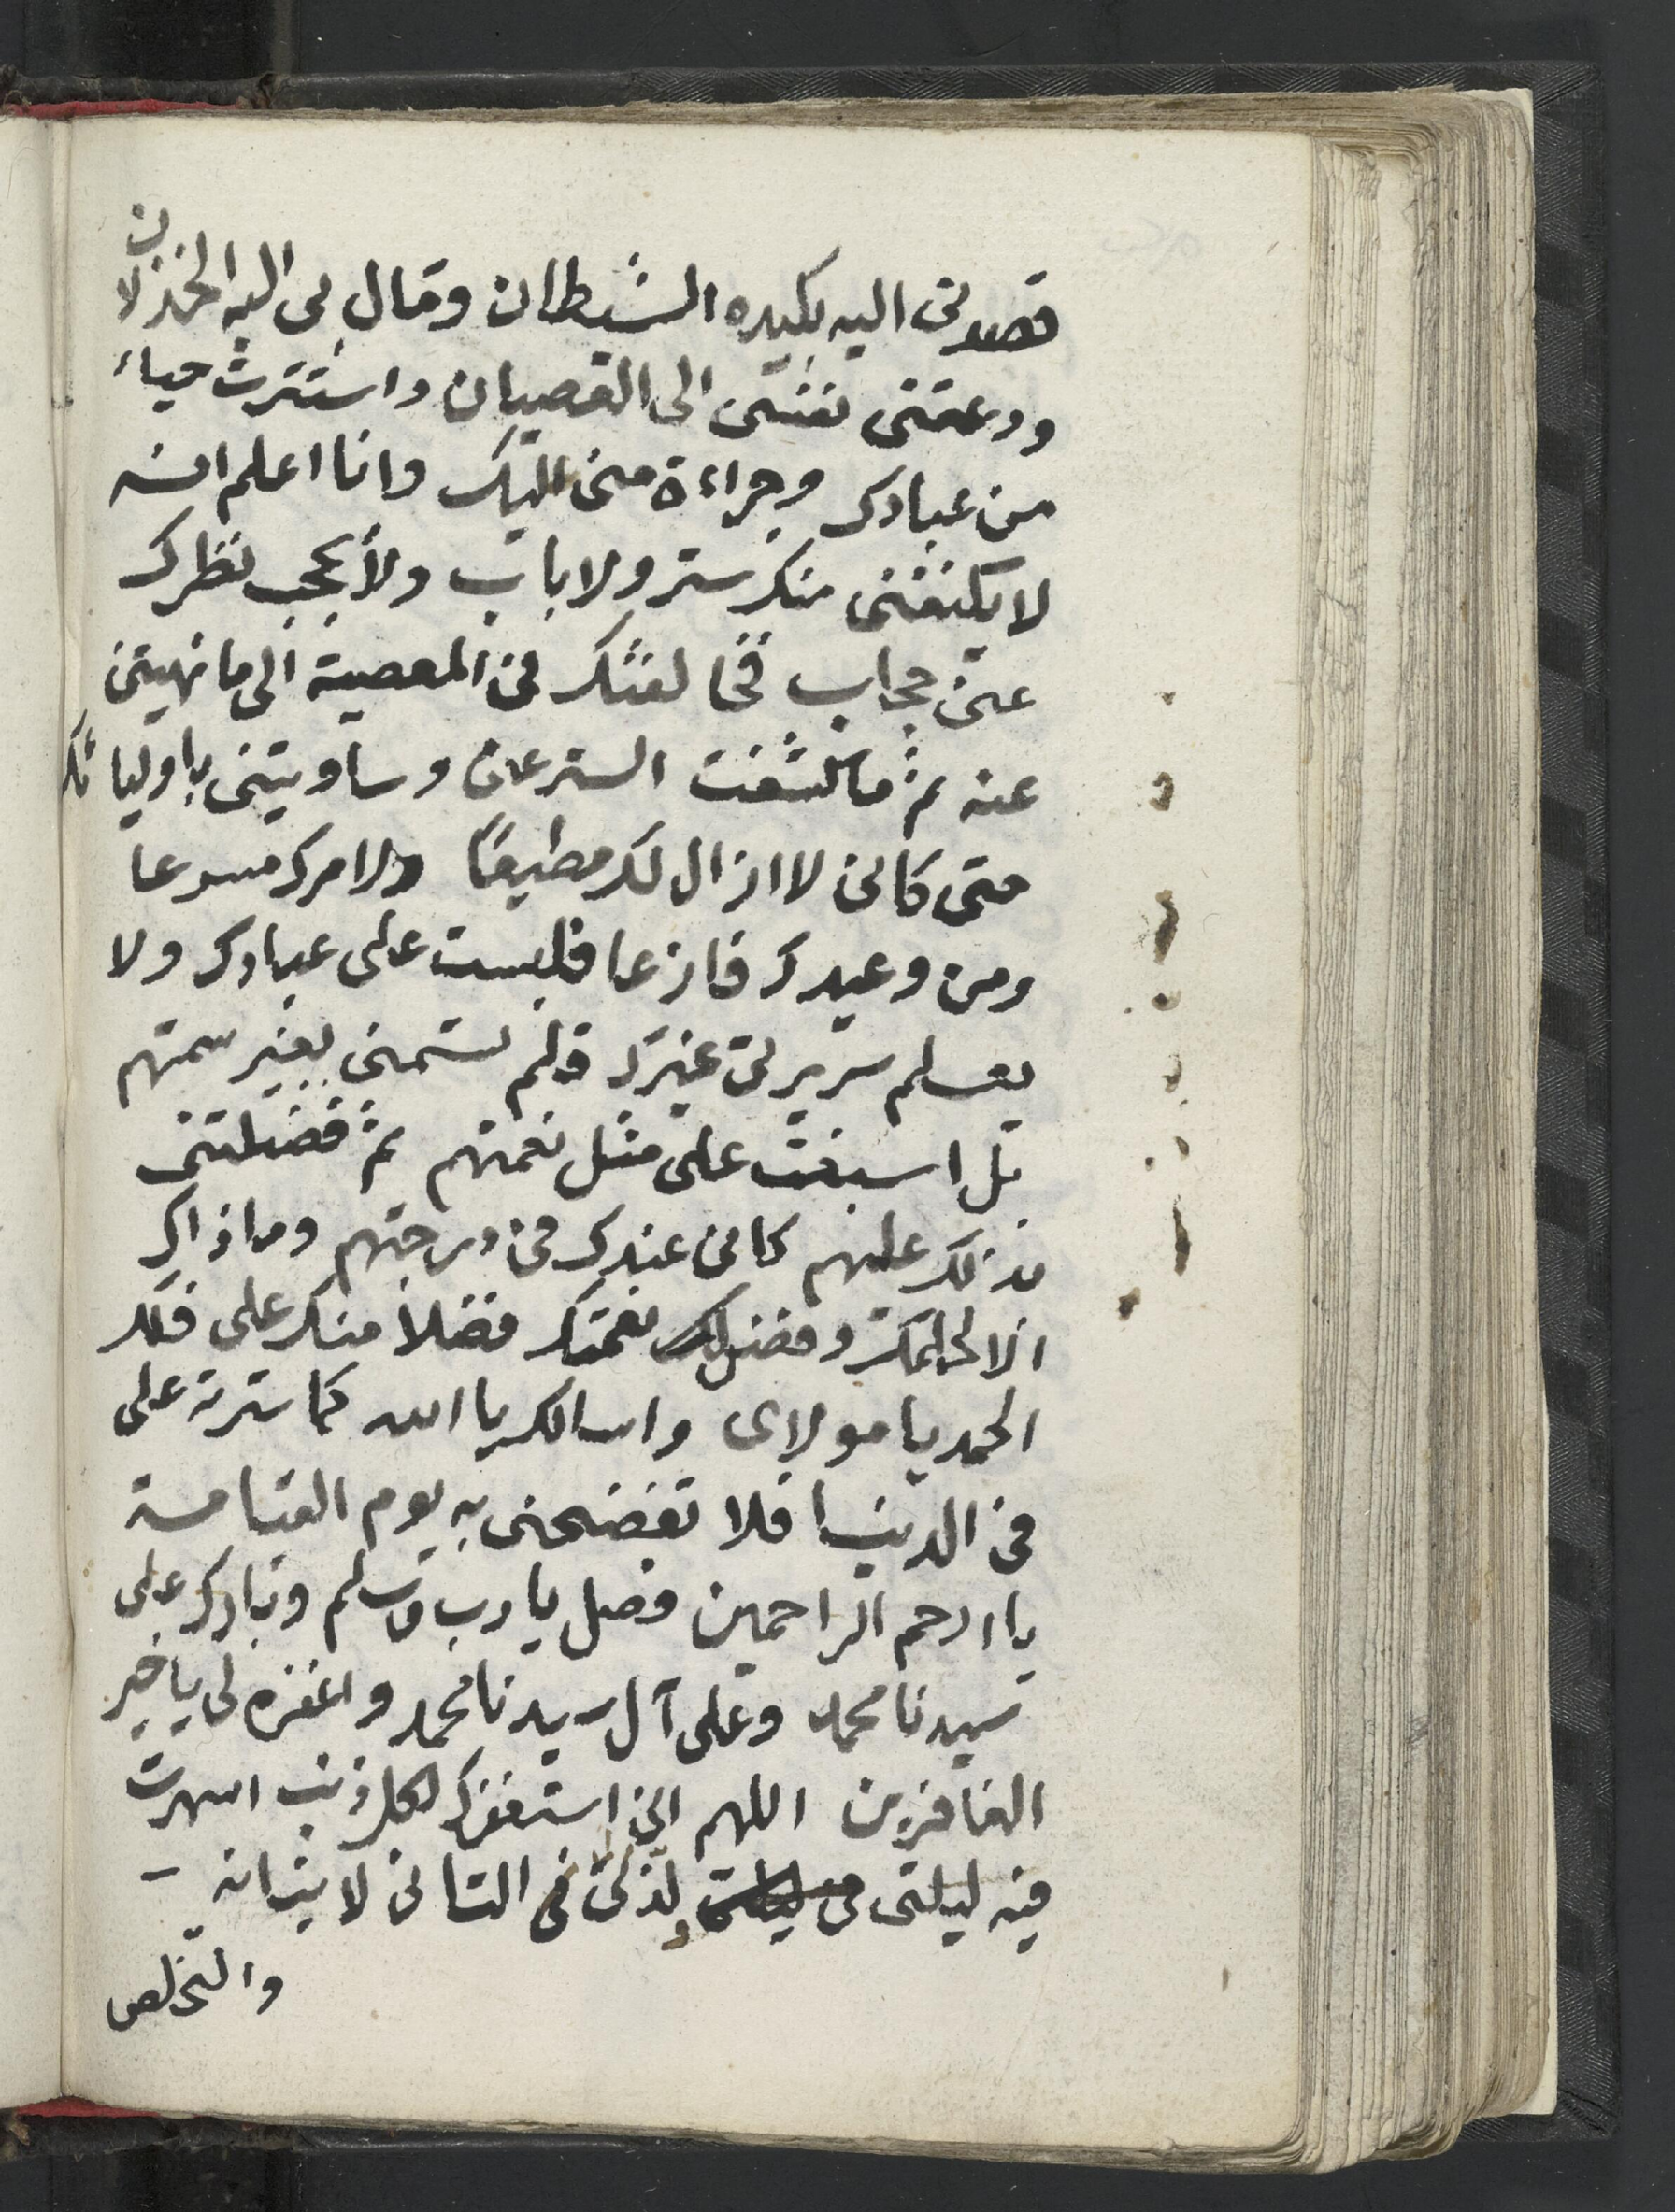 قصدنى اليه بكيده الشيطان ومال بى اليه الخذلان
ودعتنى نفسى الى العصيان واستترت حياء
من عبادك وجراءة منى اليك وانا اعلم انه
لا يكنفنى منك ستر ولا باب ولا يحجب نظرك
عنى حجاب فخالفتك فى المعصية الى ما نهيتنى
عنه ثم ما كشفت الستر عنى وساويتنى باوليائك
حتى كانى لا ازال لك مطيعًا ولامرك مسرعا
ومن وعيدك فازعا فلبست على عبادك ولا
يعلم سريرتى غيرك فلم تسمنى بغير سمتهم
بل اسبغت على مثل نعمتهم ثم فضلتنى
بذلك عليهم كانى عندك فى درجتهم وما ذاك
الا لحلمك وفضل نعمتك فضلا منك على فلك
الحمد يا مولاى واسالك يا الله كما سترته على
فى الدنيا فلا تفضحنى به يوم القيامة
يا ارحم الراحمين فصل يا رب وسلم وبارك على
سيدنا محمد وعلى آل سيدنا محمد واغفره لى يا خير
الغافرين اللهم انى استغفرك لكل ذنب اسهرت
فيه ليلتى لذتى فى التانى لاتيانه
والتخلص